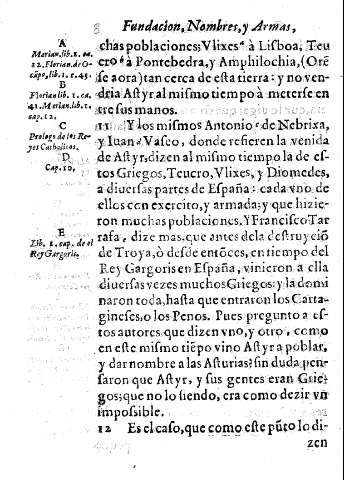 8 Fundacion, Nombres, y Armas,
A
Marian. lib. 1. ca.
12. Florian. de O-
cãpo, lib. 1. c. 43.
B
Florian lib. 1. ca.
41. Marian. lib. 1.
cap. 12.
C
Prologo de los Re-
yes Catholicos.
D
Cap. 10,
E
Lib. 1. cap. de el
Rey Gargoris.
chas poblaciones; Vlixes à Lisboa, Teu
cro à Pontebedra, y Amphilochia, (Orẽ
se aora) tan cerca de esta tierra: y no ven-
dria Astyr al mismo tiempo à meterse en
tre sus manos.
11 Y los mismos Antonio de Nebrixa,
y Iuan Vasco, donde refieren la venida
de Astyr, dizen al mismo tiempo la de es-
tos Griegos, Teucro, Vlixes, y Diomedes,
a diuersas partes de España: cada vno de
ellos con exercito, y armada; y que hizie-
ron muchas poblaciones. Y Francisco Tar
rafa, dize mas, que antes de la destruyciõ
de Troya, ò desde entõces, en tiempo del
Rey Gargoris en España, vinieron a ella
diuersas vezes muchos Griegos: y la domi
naron toda, hasta que entraron los Carta-
gineses, o los Penos. Pues pregunto a es-
tos autores que dizen vno, y otro, como
en este mismo tiẽpo vino Astyr a poblar,
y dar nombre a las Asturias? sin duda pen-
saron que Astyr, y sus gentes eran Grie-
gos; que no lo siendo, era como dezir vn
impossible.
12 Es el caso, que como este pũto lo di-
zen